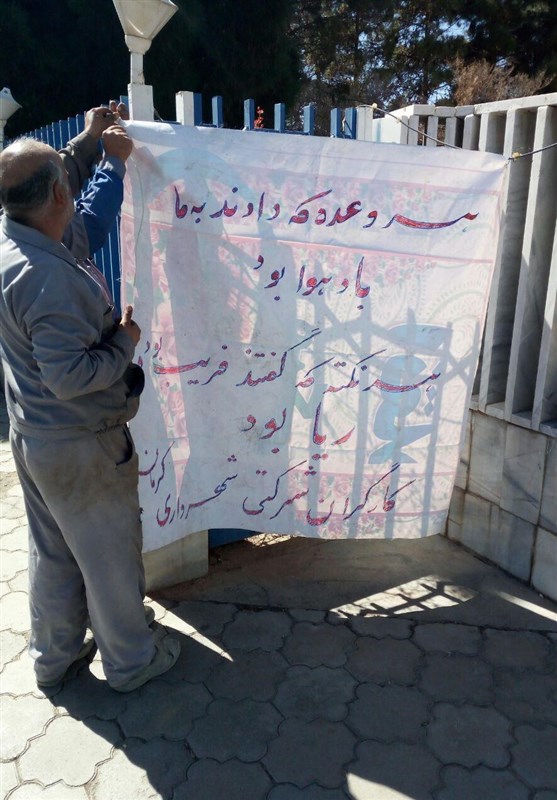 هر وعده که دادند به ما
باد هوا بود
هر نکته که گفتند فریب بود
ریا بود
کارگران شرکتی شهرداری کرمان